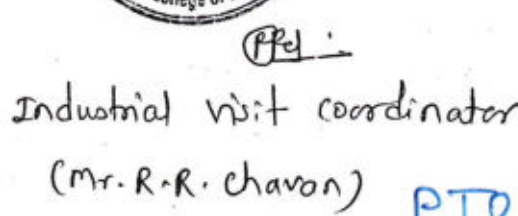 College of
Industrial visit coordinator
(Mr. R.R. Chavan)
PTO